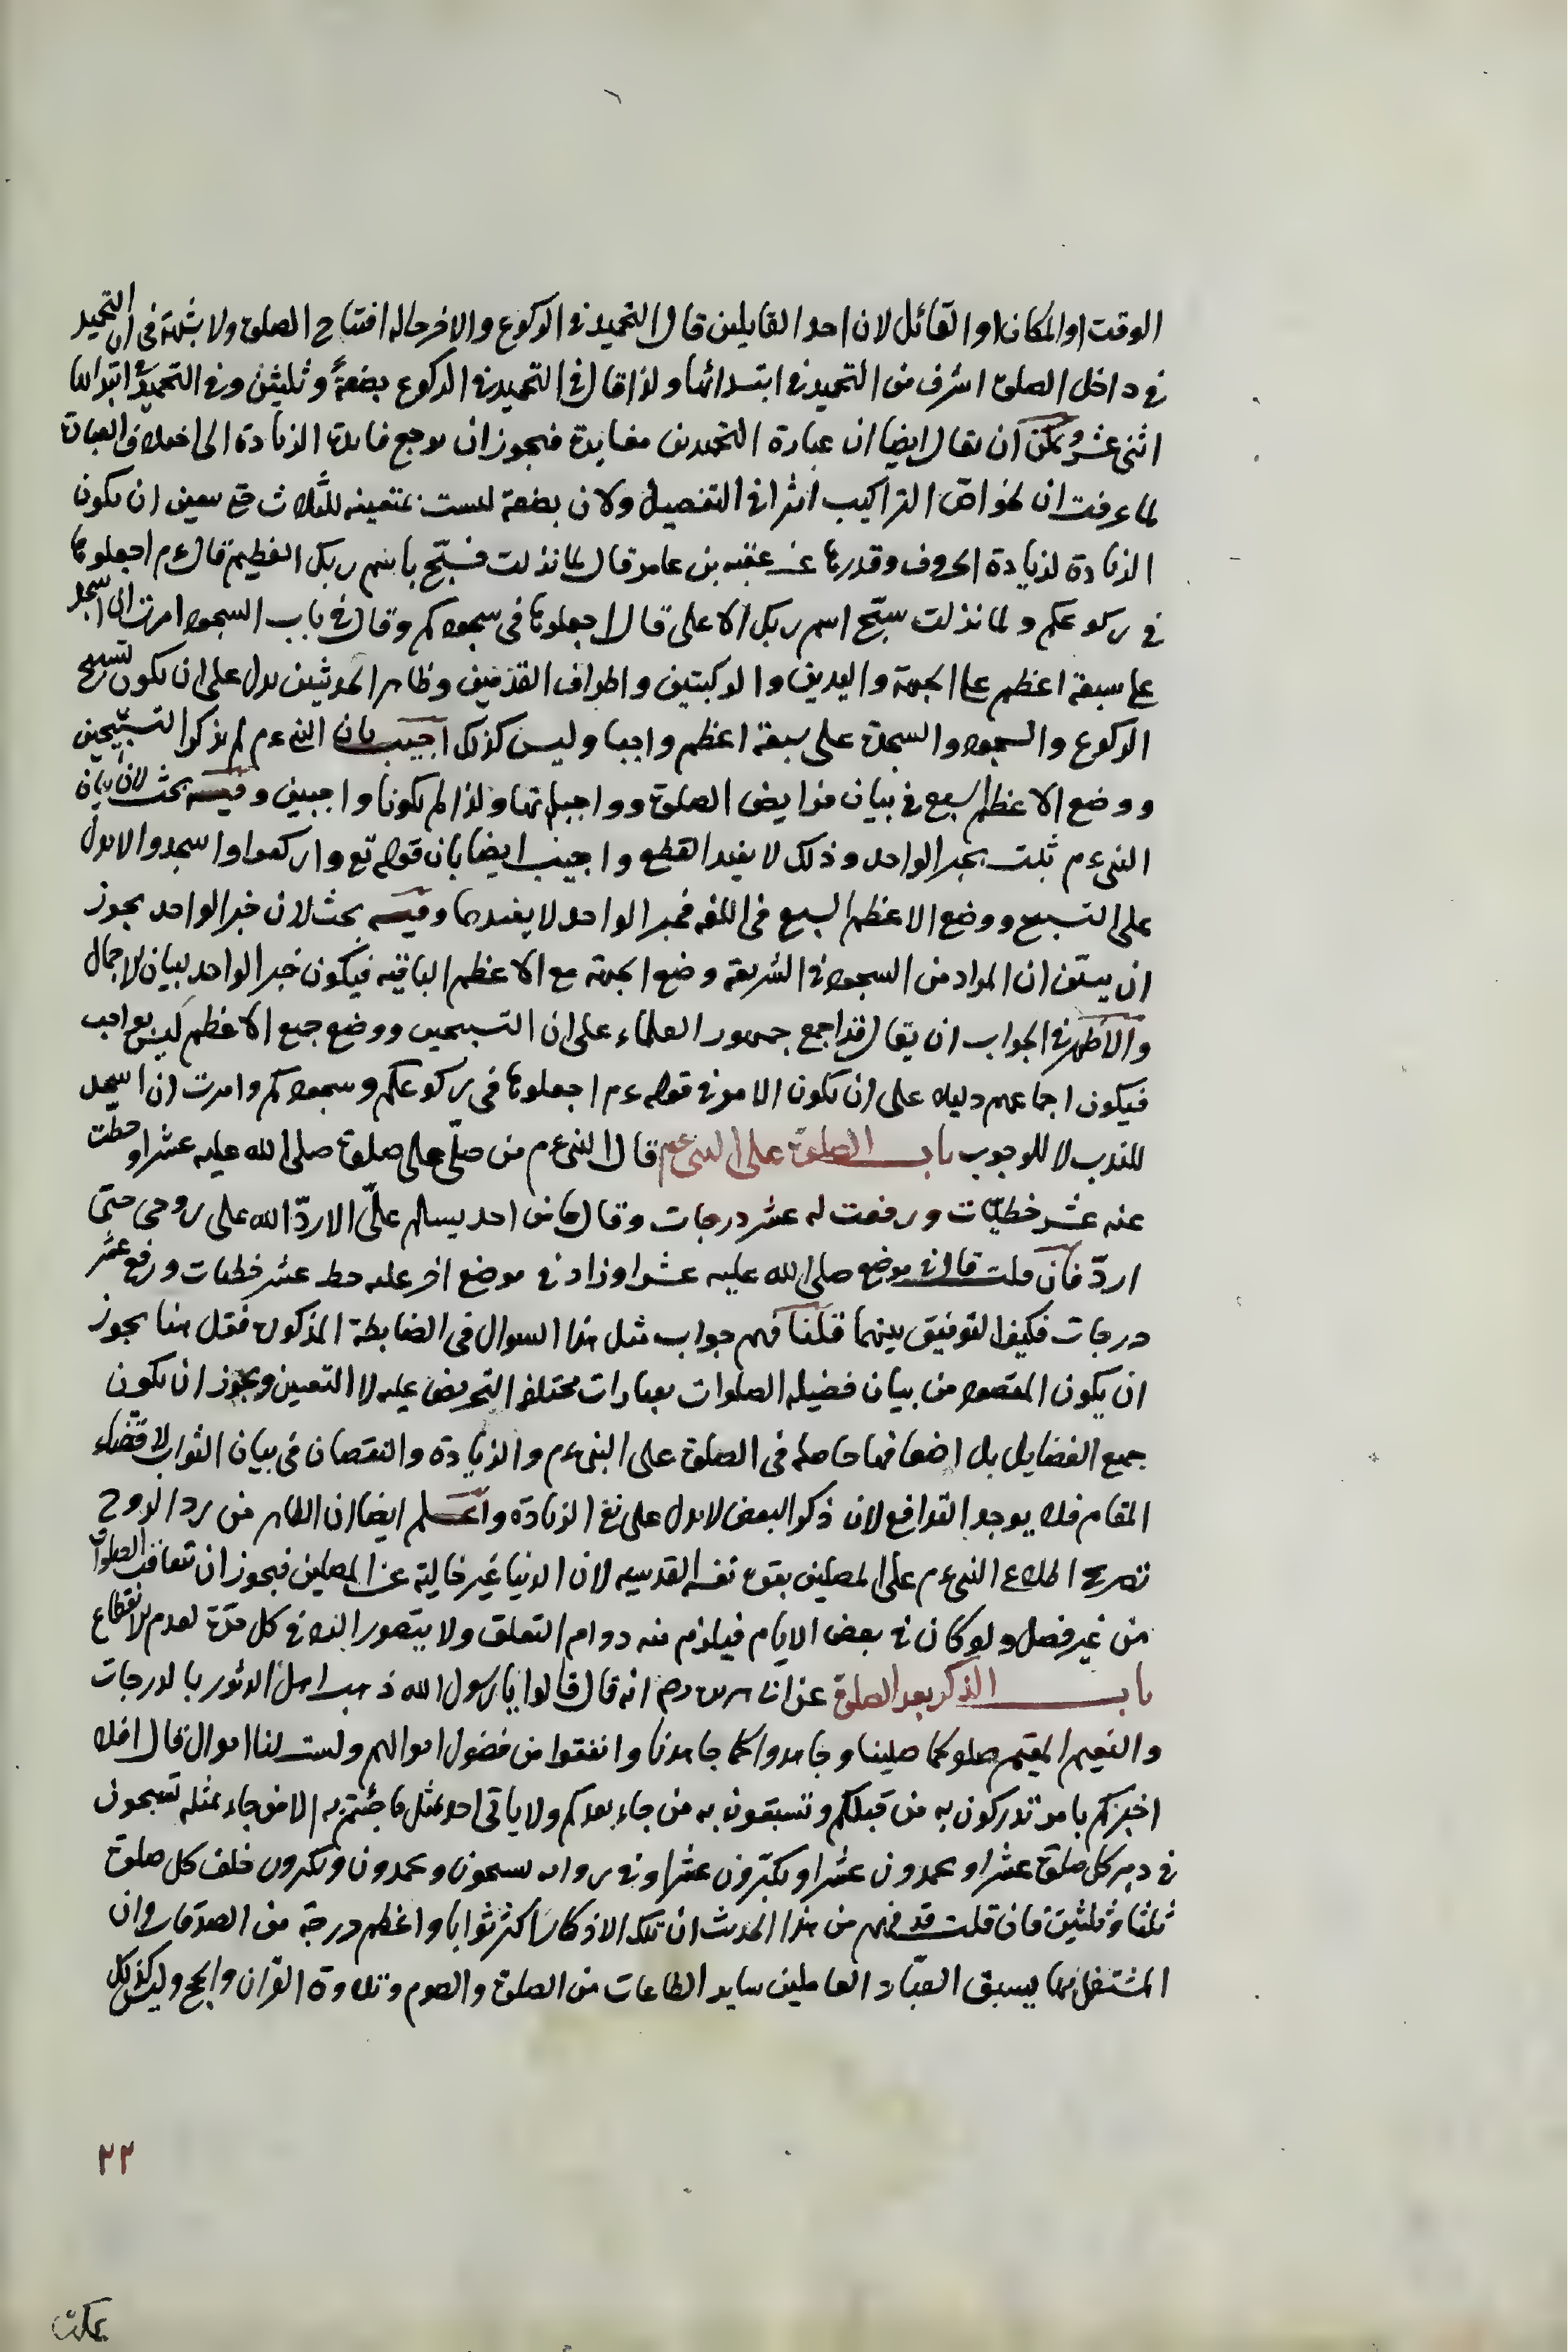 الوقت او المكان او القائل لان احد القايلين قال التحميد فى الركوع والاخر حاله افتتاح الصلوة ولا شبهة فى ان التحميد
فى داخل الصلوة اشرف من التحميد فى ابتدائها ولذا قال فى التحميد فى الركوع بضعةً وثلثين وفى التحميد فى ابتدائها
اثنى عشر ويمكن ان يقال ايضا ان عبارة التحميدين مغايرة فيجوز ان يرجع فايدة الزيادة الى اختلاف العبارة
لما عرفت ان لخواص التراكيب اثرا فى التفصيل ولان بضعة ليست بمتعينه للثلاث حتى يتعين ان يكون
الزيادة لزيادة الحروف وقدرها عن عقبه بن عامر قال لما نزلت فسبّح باسم ربك العظيم قال ءم اجعلوها
فى ركوعكم ولما نزلت سبّح اسم ربك الاعلى قال اجعلوها فى سجودكم وقال فى باب السجود امرت ان اسجد
على سبعة اعظم على الجبهة واليدين والركبتين واطراف القدمين وظاهر الحديثين يدل على ان يكون تسبيح
الركوع والسجود والسجدة على سبعة اعظم واجبا وليس كذلك اجيب بان النبى ءم لم يذكر التسبيحين
ووضع الاعظم السبع فى بيان فرايض الصلوة وواجباتها ولذا لم يكونا واجبين وفيه بحث لان بيان
النبى ءم ثبت بخبر الواحد وذلك لا يفيد القطع واجيب ايضا بان قوله تع واركعوا واسجدوا لا يدل
على التسبيح ووضع الاعظم السبع فى اللغه فخبر الواحد لا يفيدهما وفيه بحث لان خبر الواحد يجوز
ان يبيّن ان المراد من السجود فى الشريعة وضع الجبهة مع الاعظم الباقيه فيكون خبر الواحد لبيان الاجمال
والاظهر فى الجواب ان يقال قد اجمع جمهور العلماء على ان التسبيحين ووضع جميع الاعظم ليس بواجب
فيكون اجماعهم دليلا على ان يكون الامر فى قوله ءم اجعلوها فى ركوعكم وسجودكم وامرت ان اسجد
للندب لا للوجوب باب الصلوة على النبى ءم قال النبى ءم من صلّى على صلوة صلى الله عليه عشرا وحطّت
عنه عشر خطيّات ورفعت له عشر درجات وقال ما من احد يسلم علىّ الا ردّ الله على روحى حتى
اردّ فان قلت قال فى موضع صلى الله عليه عشرا وزاد فى موضع اخر عليه حط عشر خطيات ورفع عشر
درجات فكيف التوفيق بينهما قلنا فهم جواب مثل هذا السوال فى الضابطة المذكورة فقل هنا يجوز
ان يكون المقصود من بيان فضيله الصلوات بعبارات مختلفة التحريض عليه لا التعيين ويجوز ان يكون
جميع الفضايل بل اضعافها حاصله فى الصلوة على النبى ءم والزيادة والنقصان فى بيان الثواب لاقتضاء
المقام فلا يوجد التدافع لان ذكر البعض لا يدل على نفى الزيادة واعلم ايضا ان الظاهر من رد الروح
تصريح اطلاع النبى ءم على المصلين بقوة نفسه القدسيه لان الدنيا غير خالية عن المصلين فيجوز ان تعاقب الصلوات
من غير فصل ولو كان فى بعض الايام فيلزم منه دوام التعلق ولا يتصور الرد فى كل مرّة لعدم الانقطاع
باب الذكر بعد الصلوة عن انه قال قالوا يا رسول الله ذهب اهل الدثور بالدرجات
والنعيم المقيم صلوا كما صلينا وجاهدوا كما جاهدنا وانفقوا من فضول اموالهم وليست لنا اموال قال افلا
اخبركم بامر تدركون به من قبلكم وتسبقون به من جاء بعدكم ولا ياتى احد بمثل ما جئتم به الا من جاء بمثله تسبحون
فى دبر كل صلوة عشرا وتحمدون عشرا وتكبّرون عشرا وفى رواية تسبحون وتحمدون وتكبرون خلف كل صلوة
ثلثا وثلثين فان قلت قد فهم من هذا الحديث ان تلك الاذكار اكثر ثوابا واعظم درجة من الصدقات وان
المشتغل بها يسبق العبّاد العاملين ساير الطاعات من الصلوة والصوم وتلاوة القران والحج وليس كذلك
٢٢